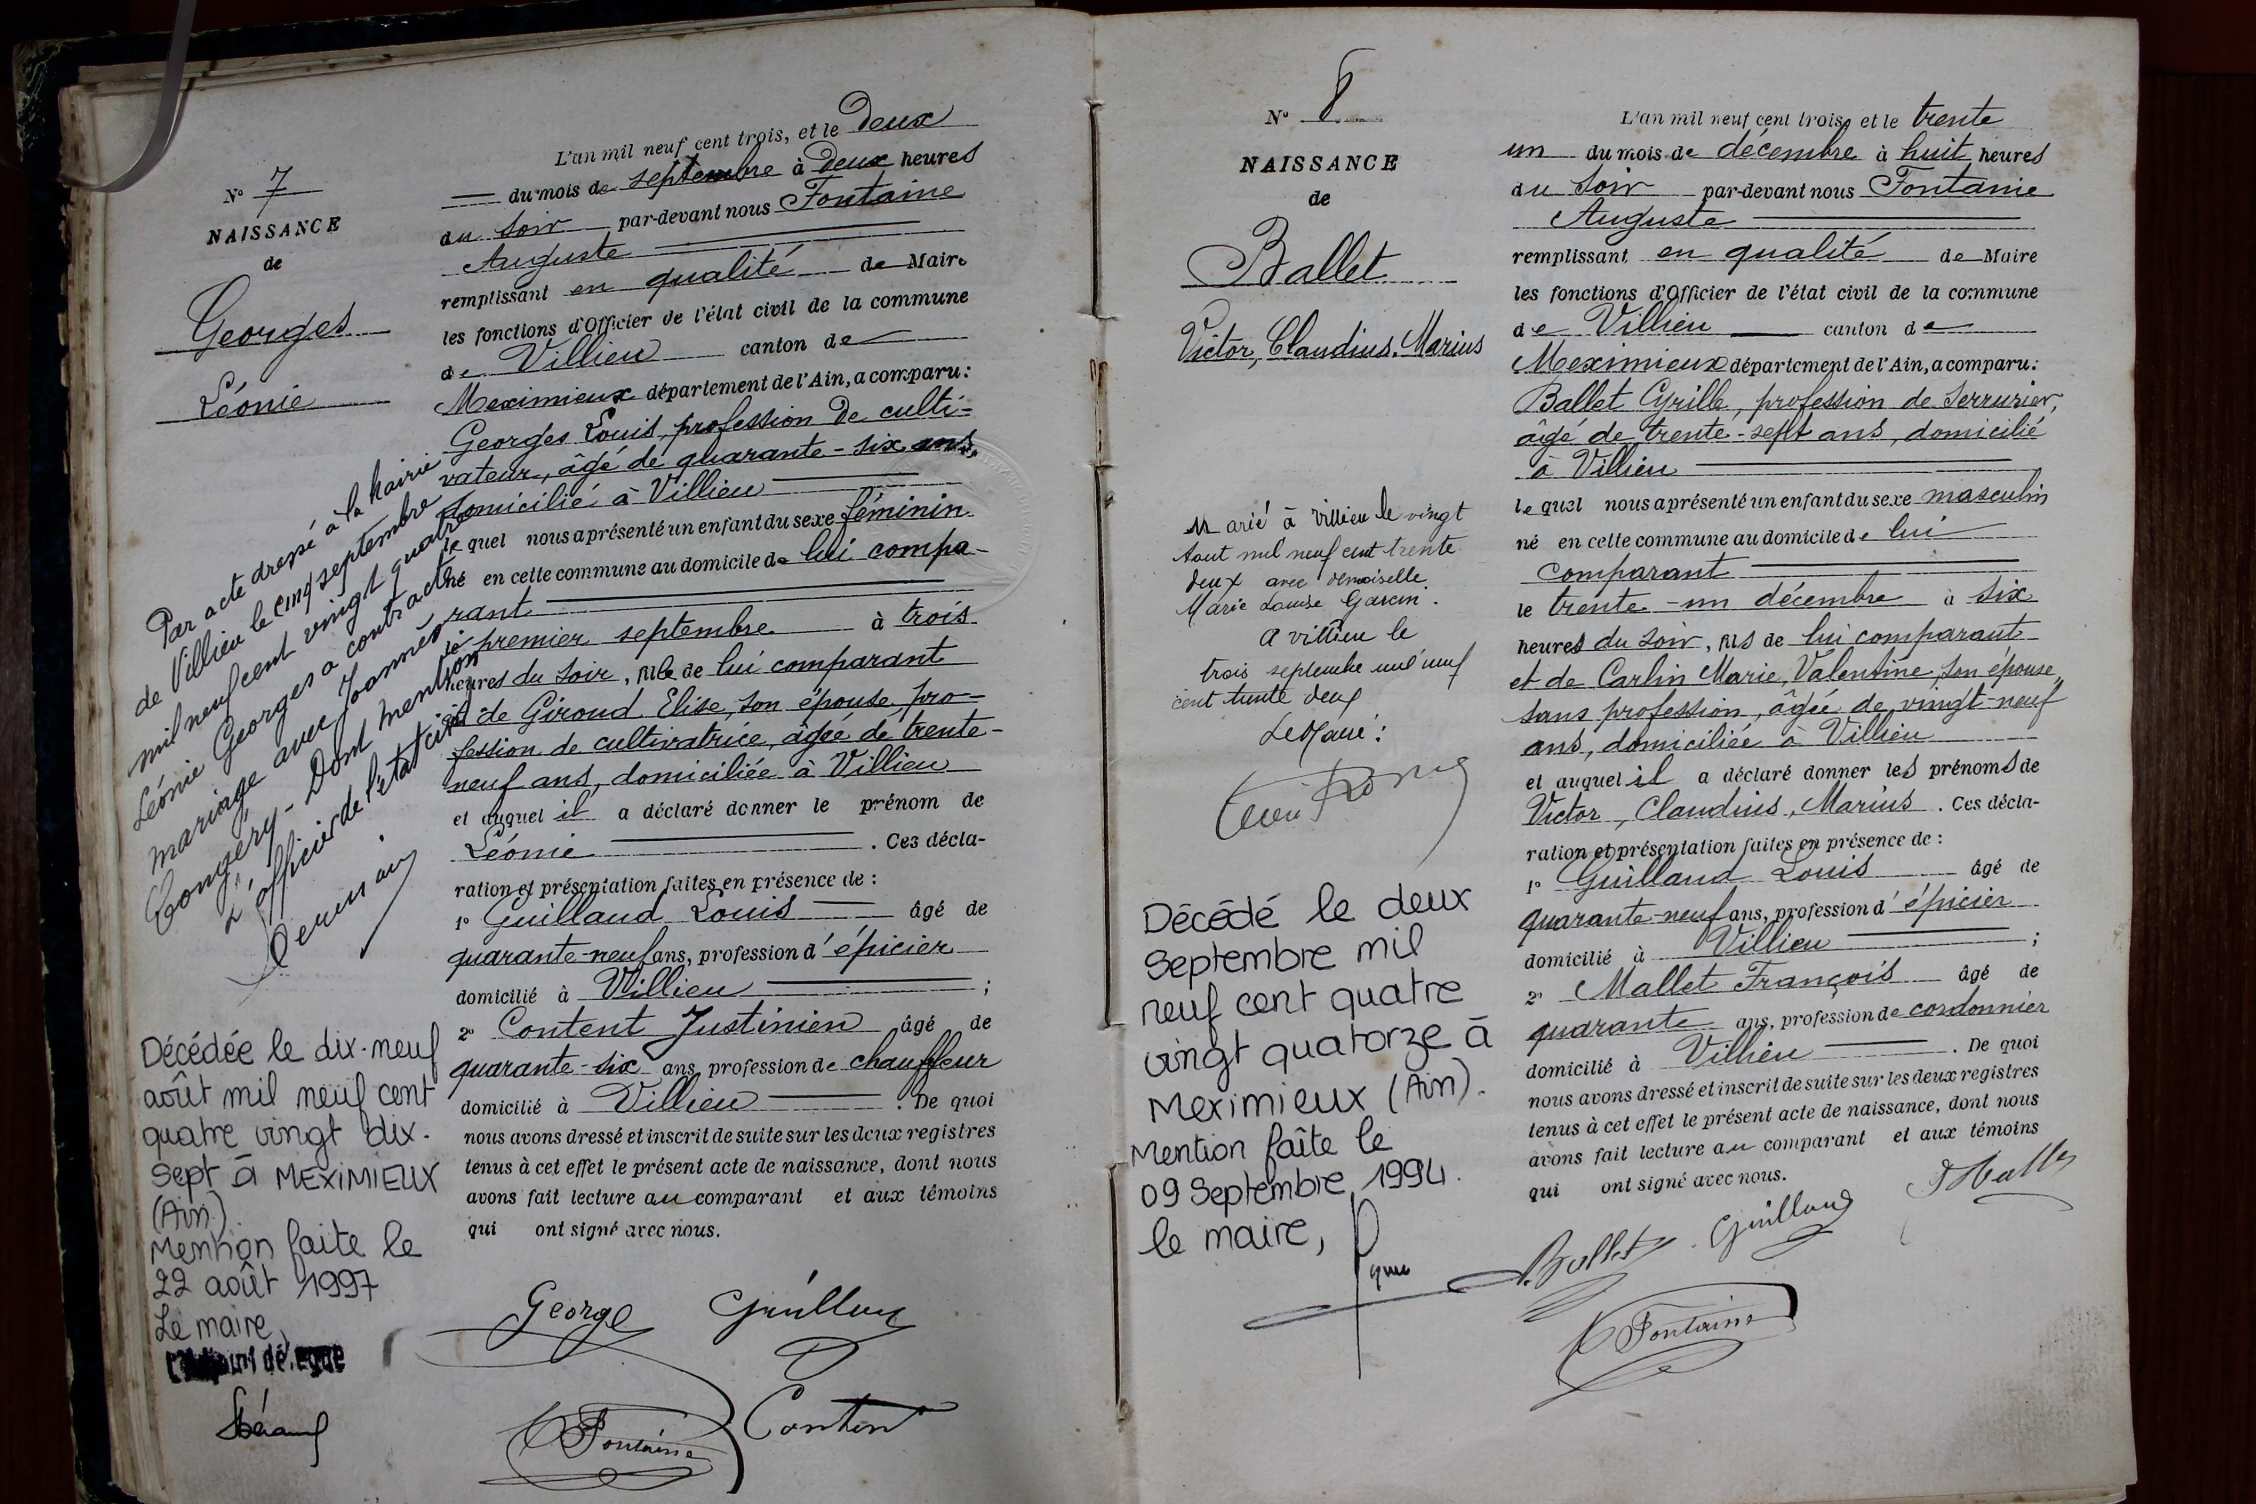 N° 7
NAISSANCE
de
Georges
Léonie
Par acte dressé à la Mairie
de Villieu le cinq septembre
mil neuf cent vingt quatre
Léonie Georges a contracté
mariage avec Joannès
Dont mention
L'officier de l'état civil
Décédée le dix-neuf
août mil neuf cent
quatre vingt dix-
sept à MEXIMIEUX
(Ain).
Mention faite le
22 août 1997
Le maire,
L'an mil neuf cent trois, et le deux
du mois de septembre à deux heures
du soir par-devant nous Fontaine
Auguste
remplissant en qualité de Maire
les fonctions d'Officier de l'état civil de la commune
de Villieu canton de
Meximieux département de l'Ain, a comparu:
Georges Louis, profession de culti-
vateur, âgé de quarante-six ans,
domicilié à Villieu
le quel nous a présenté un enfant du sexe féminin
né en cette commune au domicile de lui compa-
rant
le premier septembre à trois
heures du soir, fille de lui comparant
et de Giroud Elise, son épouse pro-
fession de cultivatrice, âgée de trente-
neuf ans, domiciliée à Villieu
et auquel il a déclaré donner le prénom de
Léonie . Ces décla-
ration et présentation faites en présence de :
1° Guilland Louis âgé de
quarante-neuf ans, profession d'épicier
domicilié à Villieu ;
2° Content Justinien âgé de
quarante-six ans, profession de chauffeur
domicilié à Villieu . De quoi
nous avons dressé et inscrit de suite sur les deux registres
tenus à cet effet le présent acte de naissance, dont nous
avons fait lecture au comparant et aux témoins
qui ont signé avec nous.
George Guilland
Fontaine Content
N° 8
NAISSANCE
de
Ballet
Victor, Claudius, Marius
Marié à Villieu le vingt
Aout mil neuf cent trente
deux avec demoiselle
Marie Louise Garcin.
A Villieu le
trois septembre mil neuf
cent trente deux
Le Maire :
Décédé le deux
Septembre mil
neuf cent quatre
vingt quatorze à
Meximieux (Ain).
Mention faîte le
09 Septembre 1994.
le maire,
L'an mil neuf cent trois, et le trente
un du mois de décembre à huit heures
du soir par-devant nous Fontanie
Auguste
remplissant en qualité de Maire
les fonctions d'Officier de l'état civil de la commune
de Villieu canton de
Meximieux département de l'Ain, a comparu:
Ballet Cyrille, profession de serrurier,
âgé de trente-sept ans, domicilié
à Villieu
le quel nous a présenté un enfant du sexe masculin
né en cette commune au domicile de lui
comparant
le trente-un décembre à six
heures du soir, fils de lui comparant
et de Carlin Marie, Valentine, son épouse,
sans profession, âgée de vingt-neuf
ans, domiciliée à Villieu
et auquel il a déclaré donner les prénoms de
Victor, Claudius, Marius . Ces décla-
ration et présentation faites en présence de :
1° Guilland Louis âgé de
quarante-neuf ans, profession d'épicier
domicilié à Villieu ;
2° Mallet François âgé de
quarante ans, profession de cordonnier
domicilié à Villieu . De quoi
nous avons dressé et inscrit de suite sur les deux registres
tenus à cet effet le présent acte de naissance, dont nous
avons fait lecture au comparant et aux témoins
qui ont signé avec nous.
Ballet Guilland
Fontaine